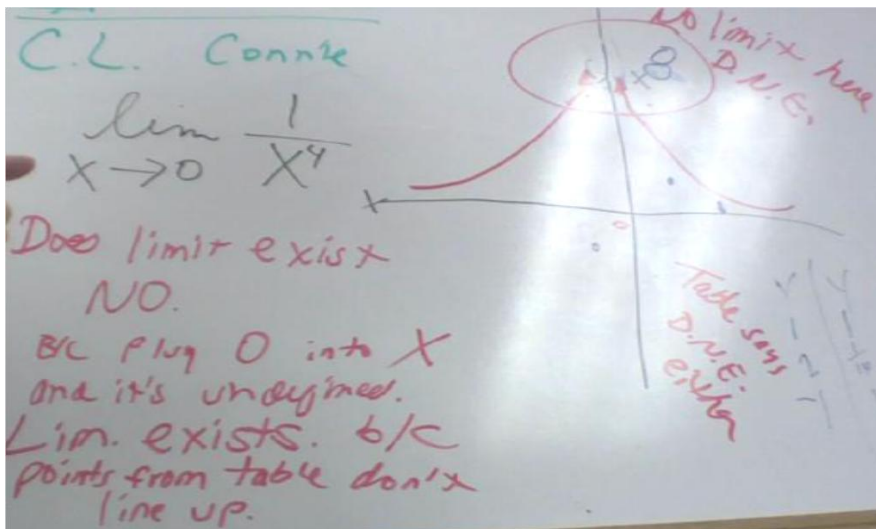 C.L. Connie
lim 1
x→0 x⁴
Does limit exist
NO.
B/C plug 0 into X
and it's undefined.
Lim. exists. b/c
points from table don't
line up.
NO limit here
D.N.E.
x
0
Table says
D.N.E.
either